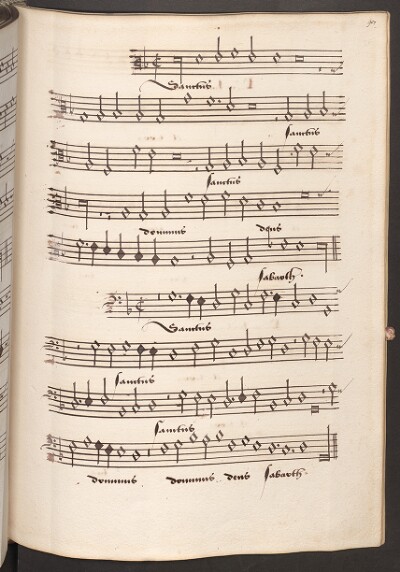 Sanctus
sanctus
sanctus
dominus deus
sabaoth
Sanctus
sanctus
sanctus
dominus dominus deus sabaoth